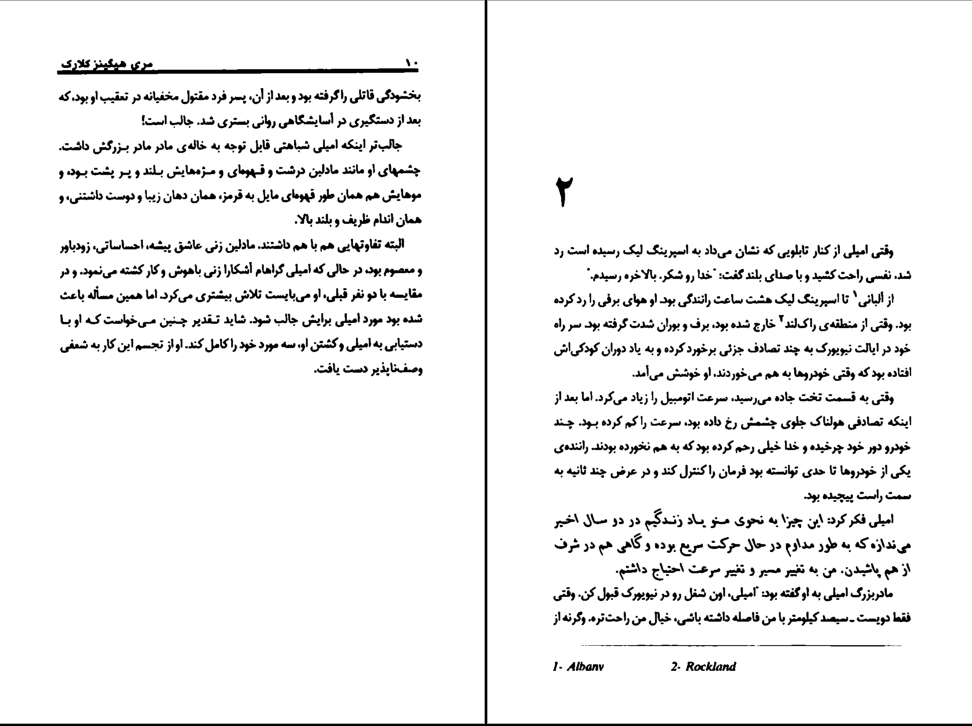 ۱۰ مری هیگینز کلارک
بخشودگی قاتلی را گرفته بود و بعد از آن، پسر فرد مقتول مخفیانه در تعقیب او بود، که
بعد از دستگیری در آسایشگاهی روانی بستری شد. جالب است!
جالب‌تر اینکه امیلی شباهتی قابل توجه به خاله‌ی مادر مادر بزرگش داشت.
چشمهای او مانند مادلین درشت و قهوه‌ای و مژه‌هایش بلند و پر پشت بود، و
موهایش هم همان طور قهوه‌ای مایل به قرمز، همان دهان زیبا و دوست داشتنی، و
همان اندام ظریف و بلند بالا.
البته تفاوتهایی هم با هم داشتند. مادلین زنی عاشق پیشه، احساساتی، زودباور
و معصوم بود، در حالی که امیلی گراهام آشکارا زنی باهوش و کار کشته می‌نمود. و در
مقایسه با دو نفر قبلی، او می‌بایست تلاش بیشتری می‌کرد. اما همین مسأله باعث
شده بود مورد امیلی برایش جالب شود. شاید تقدیر چنین می‌خواست که او با
دستیابی به امیلی و کشتن او، سه مورد خود را کامل کند. او از تجسم این کار به شعفی
وصف‌ناپذیر دست یافت.
۲
وقتی امیلی از کنار تابلویی که نشان می‌داد به اسپرینگ لیک رسیده است رد
شد، نفسی راحت کشید و با صدای بلند گفت: "خدا رو شکر. بالاخره رسیدم."
از آلبانی۱ تا اسپرینگ لیک هشت ساعت رانندگی بود. او هوای برفی را رد کرده
بود. وقتی از منطقه‌ی راک‌لند۲ خارج شده بود، برف و بوران شدت گرفته بود. سر راه
خود در ایالت نیویورک به چند تصادف جزئی برخورد کرده و به یاد دوران کودکی‌اش
افتاده بود که وقتی خودروها به هم می‌خوردند، او خوشش می‌آمد.
وقتی به قسمت تخت جاده می‌رسید، سرعت اتومبیل را زیاد می‌کرد. اما بعد از
اینکه تصادفی هولناک جلوی چشمش رخ داده بود، سرعت را کم کرده بود. چند
خودرو دور خود چرخیده و خدا خیلی رحم کرده بود که به هم نخورده بودند. راننده‌ی
یکی از خودروها تا حدی توانسته بود فرمان را کنترل کند و در عرض چند ثانیه به
سمت راست پیچیده بود.
امیلی فکر کرد: این چیزا به نحوی منو یاد زندگیم در دو سال اخیر
می‌ندازه که به طور مداوم در حال حرکت سریع بوده و گاهی هم در شرف
از هم پاشیدن. من به تغییر مسیر و تغییر سرعت احتیاج داشتم.
مادربزرگ امیلی به او گفته بود: "امیلی، اون شغل رو در نیویورک قبول کن. وقتی
فقط دویست ـ سیصد کیلومتر با من فاصله داشته باشی، خیال من راحت‌تره. وگرنه از
1- Albany 2- Rockland